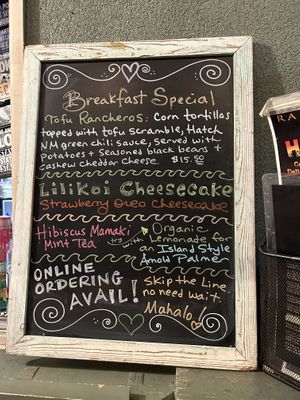 Breakfast Special
Tofu Rancheros: corn tortillas
topped with tofu scramble, Hatch
NM green chili sauce, served with
Potatoes + Seasoned black beans +
cashew cheddar cheese. $15.50
Lilikoi Cheesecake
Strawberry Oreo Cheesecake
Hibiscus Mamaki
Mint Tea
Organic
Lemonade for
an Island Style
Arnold Palmer
ONLINE
ORDERING
AVAIL!
Skip the Line
no need wait.
Mahalo!